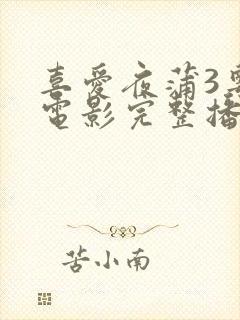 喜愛夜蒲3粵
電影完整播
苦小南